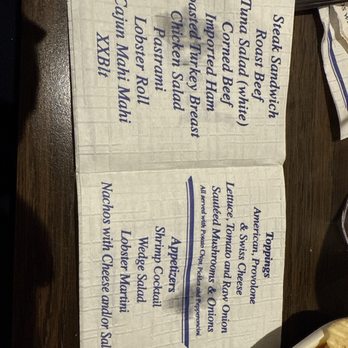 Steak Sandwich
Roast Beef
Tuna Salad (white)
Corned Beef
Imported Ham
Roasted Turkey Breast
Chicken Salad
Pastrami
Lobster Roll
Cajun Mahi Mahi
XXBlt
Toppings
American, Provolone
& Swiss Cheese
Lettuce, Tomato and Raw Onion
Sautéed Mushrooms & Onions
All served with Potato Chips, Pickles and Pepperoncini
Appetizers
Shrimp Cocktail
Wedge Salad
Lobster Martini
Nachos with Cheese and/or Sal